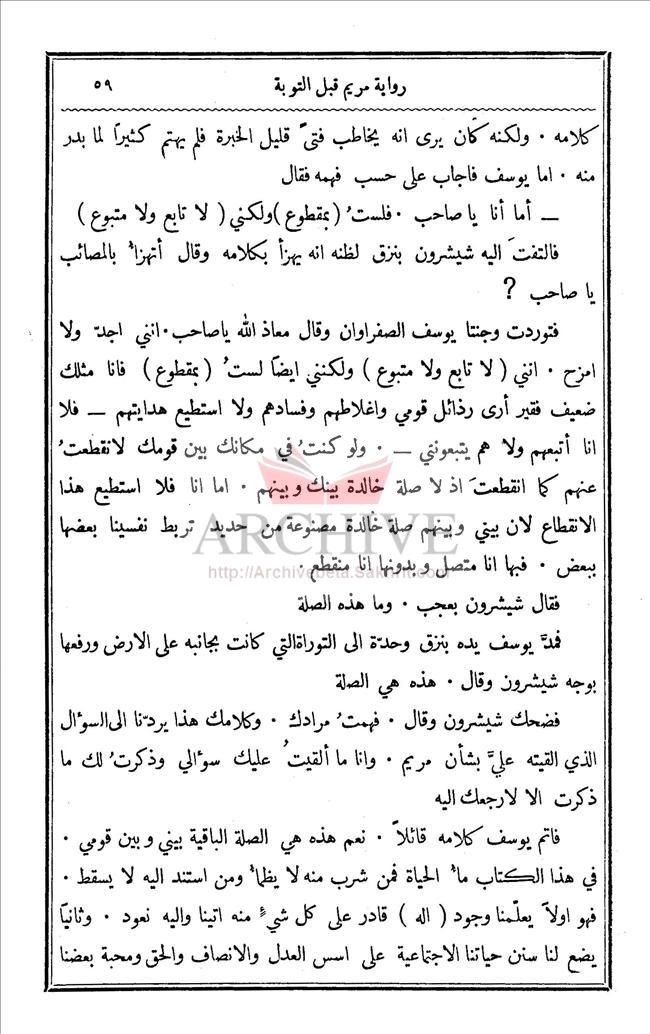 رواية مريم قبل التوبة ٥٩
كلامه ٠ ولكنه كان يرى انه يخاطب فتىً قليل الخبرة فلم يهتم كثيراً لما بدر
منه ٠ اما يوسف فاجاب على حسب فهمه فقال
— أما أنا يا صاحب ٠ فلستُ ( بمقطوع )ولكني ( لا تابع ولا متبوع )
فالتفتَ اليه شيشرون بنزق لظنه انه يهزأ بكلامه وقال أتهزأ بالمصائب
يا صاحب ?
فتوردت وجنتا يوسف الصفراوان وقال معاذ الله ياصاحب ٠ انني اجدّ ولا
امزح ٠ انني ( لا تابع ولا متبوع ) ولكنني ايضاً لستُ ( بمقطوع ) فانا مثلك
ضعيف فقير أرى رذائل قومي واغلاطهم وفسادهم ولا استطيع هدايتهم — فلا
انا أتبعهم ولا هم يتبعونني — ٠ ولو كنتُ في مكانك بين قومك لانقطعتُ
عنهم كما انقطعتَ اذ لا صلة خالدة بينك وبينهم ٠ اما انا فلا استطيع هذا
الانقطاع لان بيني وبينهم صلة خالدة مصنوعة من حديد تربط نفسينا بعضها
ARCHIVE
ببعض ٠ فبها انا متصل وبدونها انا منقطع ٠
http://Archivebeta.Sakhrit.com
فقال شيشرون بعجب ٠ وما هذه الصلة
فمدَّ يوسف يده بنزق وحدّة الى التوراةالتي كانت بجانبه على الارض ورفعها
بوجه شيشرون وقال ٠ هذه هي الصلة
فضحك شيشرون وقال ٠ فهمتُ مرادك ٠ وكلامك هذا يردّنا الى السوال
الذي القيته عليَّ بشأن مريم ٠ وانا ما ألقيتُ عليك سوءالي وذكرتُ لك ما
ذكرت الا لارجعك اليه
فاتم يوسف كلامه قائلاً ٠ نعم هذه هي الصلة الباقية بيني وبين قومي ٠
في هذا الكتاب ماءُ الحياة فمن شرب منه لا يظمأُ ومن استند اليه لا يسقط ٠
فهو اولاً يعلّمنا وجود ( اله ) قادر على كل شيءٍ منه اتينا واليه نعود ٠ وثانياً
يضع لنا سنن حياتنا الاجتماعية على اسس العدل والانصاف والحق ومحبة بعضنا